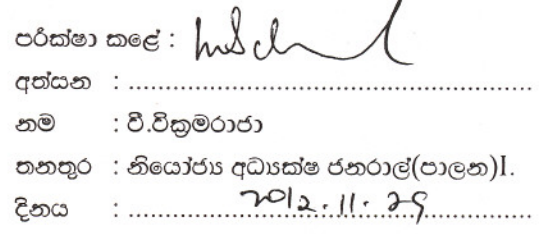 පරීක්ෂා කළේ :
අත්සන : ....................................................
නම : වී.වික්‍රමරාජා
තනතුර : නියෝජ්‍ය අධ්‍යක්ෂ ජනරාල්(පාලන)I.
දිනය : ................2012.11.29................